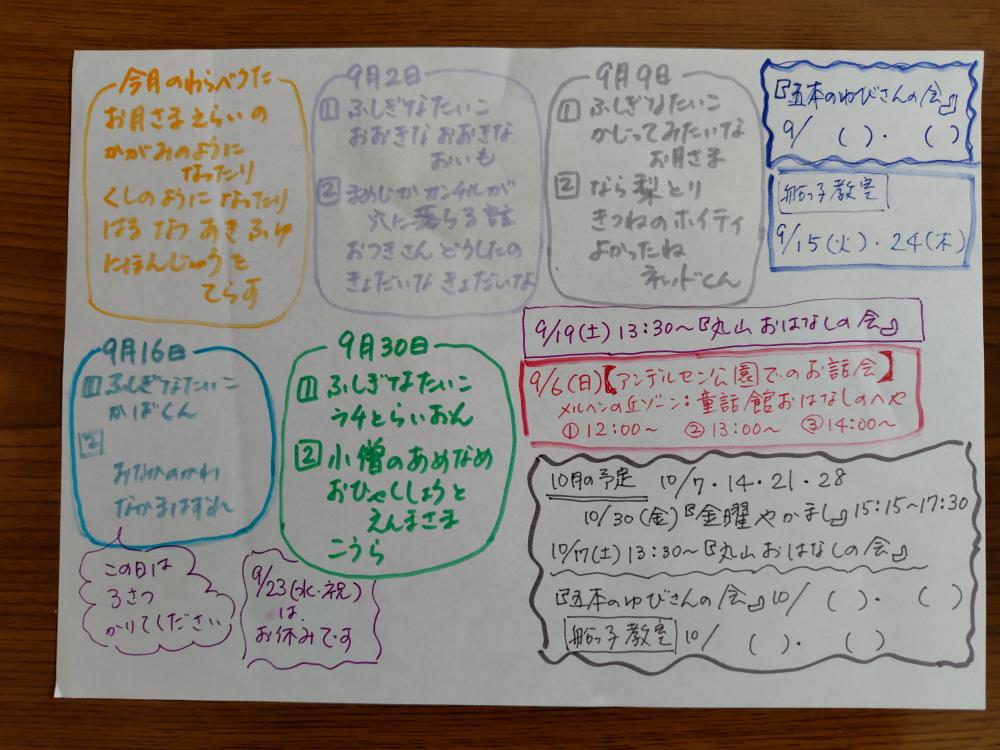 今月のわらべうた
お月さまえらいの
かがみのように
なったり
くしのように なったり
はる なつ あき ふゆ
にほんじゅうを
てらす
9月2日
1 ふしぎなたいこ
おおきな おおきな
おいも
2 まめじか カンチルが
穴に落ちる話
おつきさん どうしたの
きょだいな きょだいな
9月9日
1 ふしぎなたいこ
かじってみたいな
お月さま
2 なら梨とり
きつねのホイティ
よかったね
ネッドくん
『五本のゆびさんの会』
9/ ( )・ ( )
船っ子教室
9/15(火)・24(木)
9月16日
1 ふしぎなたいこ
かばくん
2
おなかのかわ
なかまはずれ
この日は
3さつ
かりてください
9月30日
1 ふしぎなたいこ
ラチとらいおん
2 小僧のあめなめ
おひゃくしょうと
えんまさま
こうら
9/23(水・祝)
は
お休みです
9/19(土) 13:30〜『丸山 おはなしの会』
9/6(日)【アンデルセン公園でのお話会】
メルヘンの丘ゾーン:童話館おはなしのへや
①12:00〜 ②13:00〜 ③14:00〜
10月の予定 10/7・14・21・28
10/30(金)『金曜やかまし』15:15〜17:30
10/17(土) 13:30〜『丸山 おはなしの会』
『五本のゆびさんの会』10/ ( )・ ( )
船っ子教室 10/ ( )・ ( )